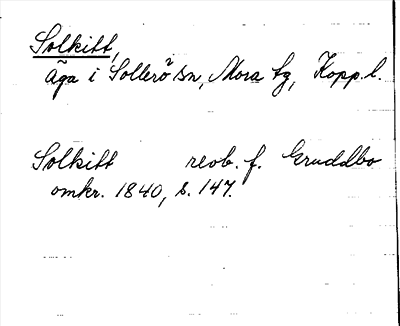 Solkitt,
äga i Sollerö sn, Mora tg, Kopp. l.
Solkitt reob. f. Gruddbo
omkr. 1840, s. 147.